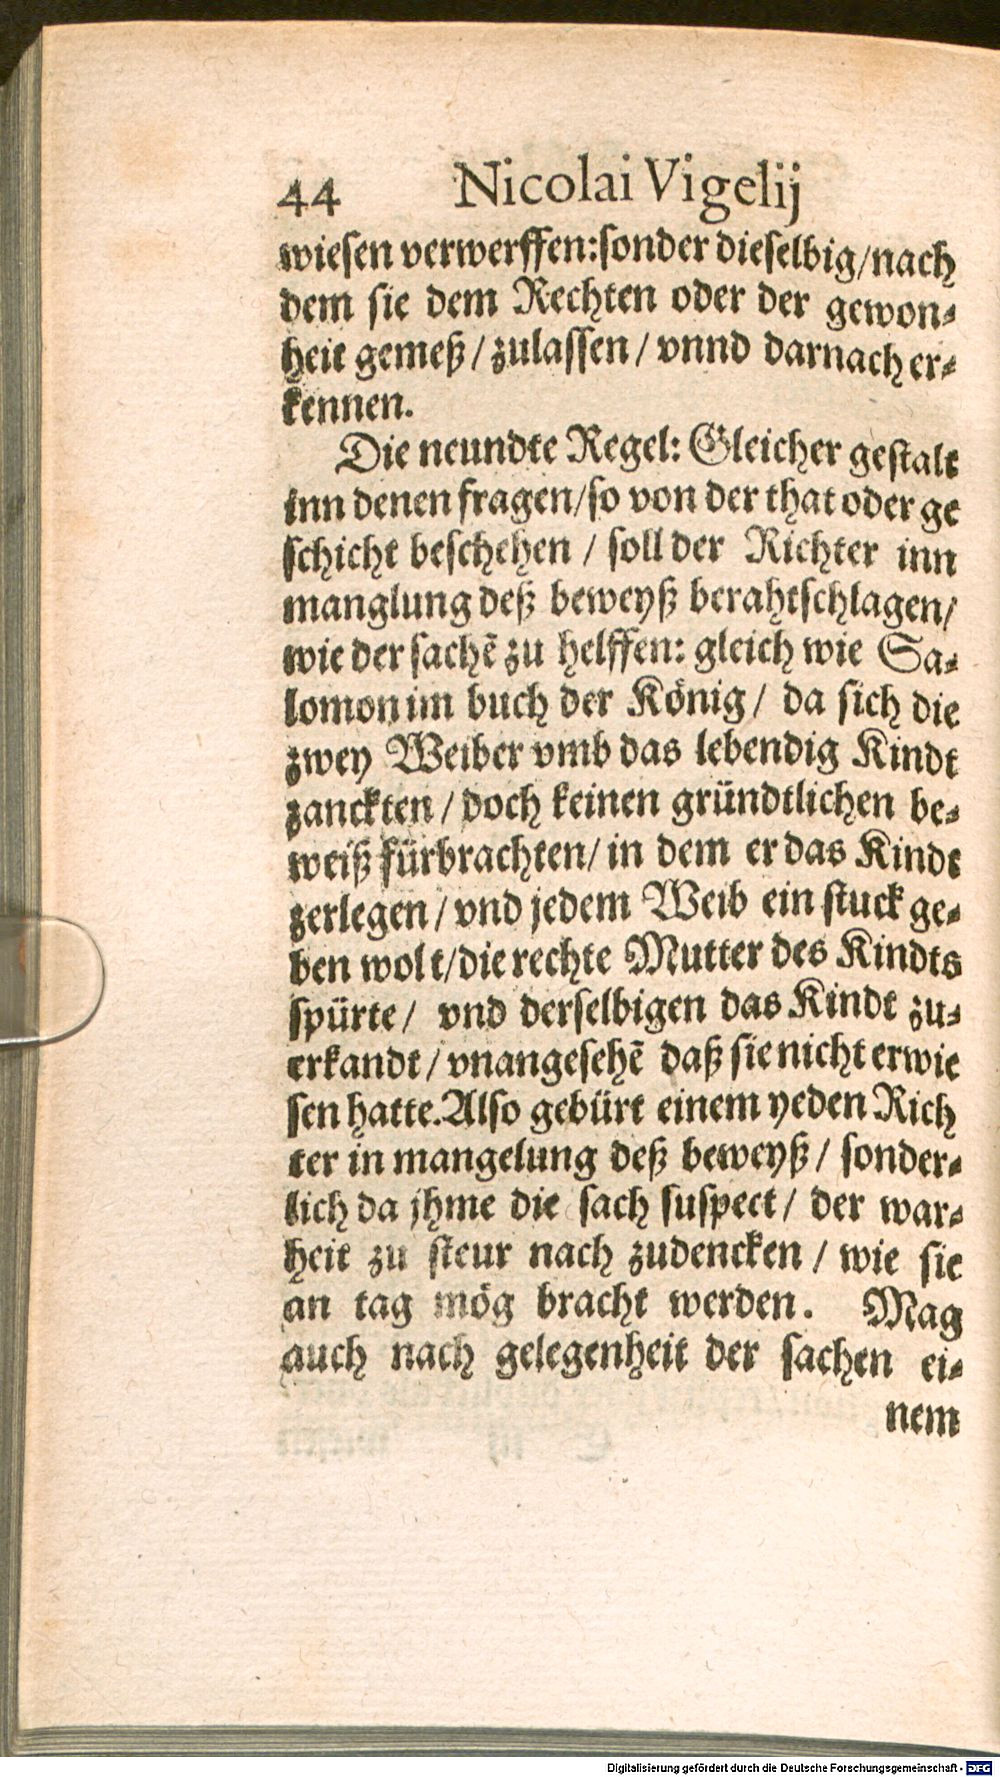 44 Nicolai Vigelij
wiesen verwerffen:sonder dieselbig/nach
dem sie dem Rechten oder der gewon⸗
heit gemeß / zulassen / vnnd darnach er⸗
kennen.
Die neundte Regel: Gleicher gestalt
inn denen fragen/so von der that oder ge
schicht beschehen / soll der Richter inn
manglung deß beweyß berahtschlagen/
wie der sachẽ zu helffen: gleich wie Sa⸗
lomon im buch der König / da sich die
zwey Weiber vmb das lebendig Kindt
zanckten / doch keinen gründtlichen be⸗
weiß fürbrachten/ in dem er das Kindt
zerlegen / vnd jedem Weib ein stuck ge⸗
ben wolt/die rechte Mutter des Kindts
spürte / vnd derselbigen das Kindt zu⸗
erkandt / vnangesehẽ daß sie nicht erwie
sen hatte.Also gebürt einem yeden Rich
ter in mangelung deß beweyß / sonder⸗
lich da jhme die sach suspect / der war⸗
heit zu steur nach zudencken / wie sie
an tag mög bracht werden. Mag
auch nach gelegenheit der sachen ei⸗
nem
Digitalisierung gefördert durch die Deutsche Forschungsgemeinschaft - DFG